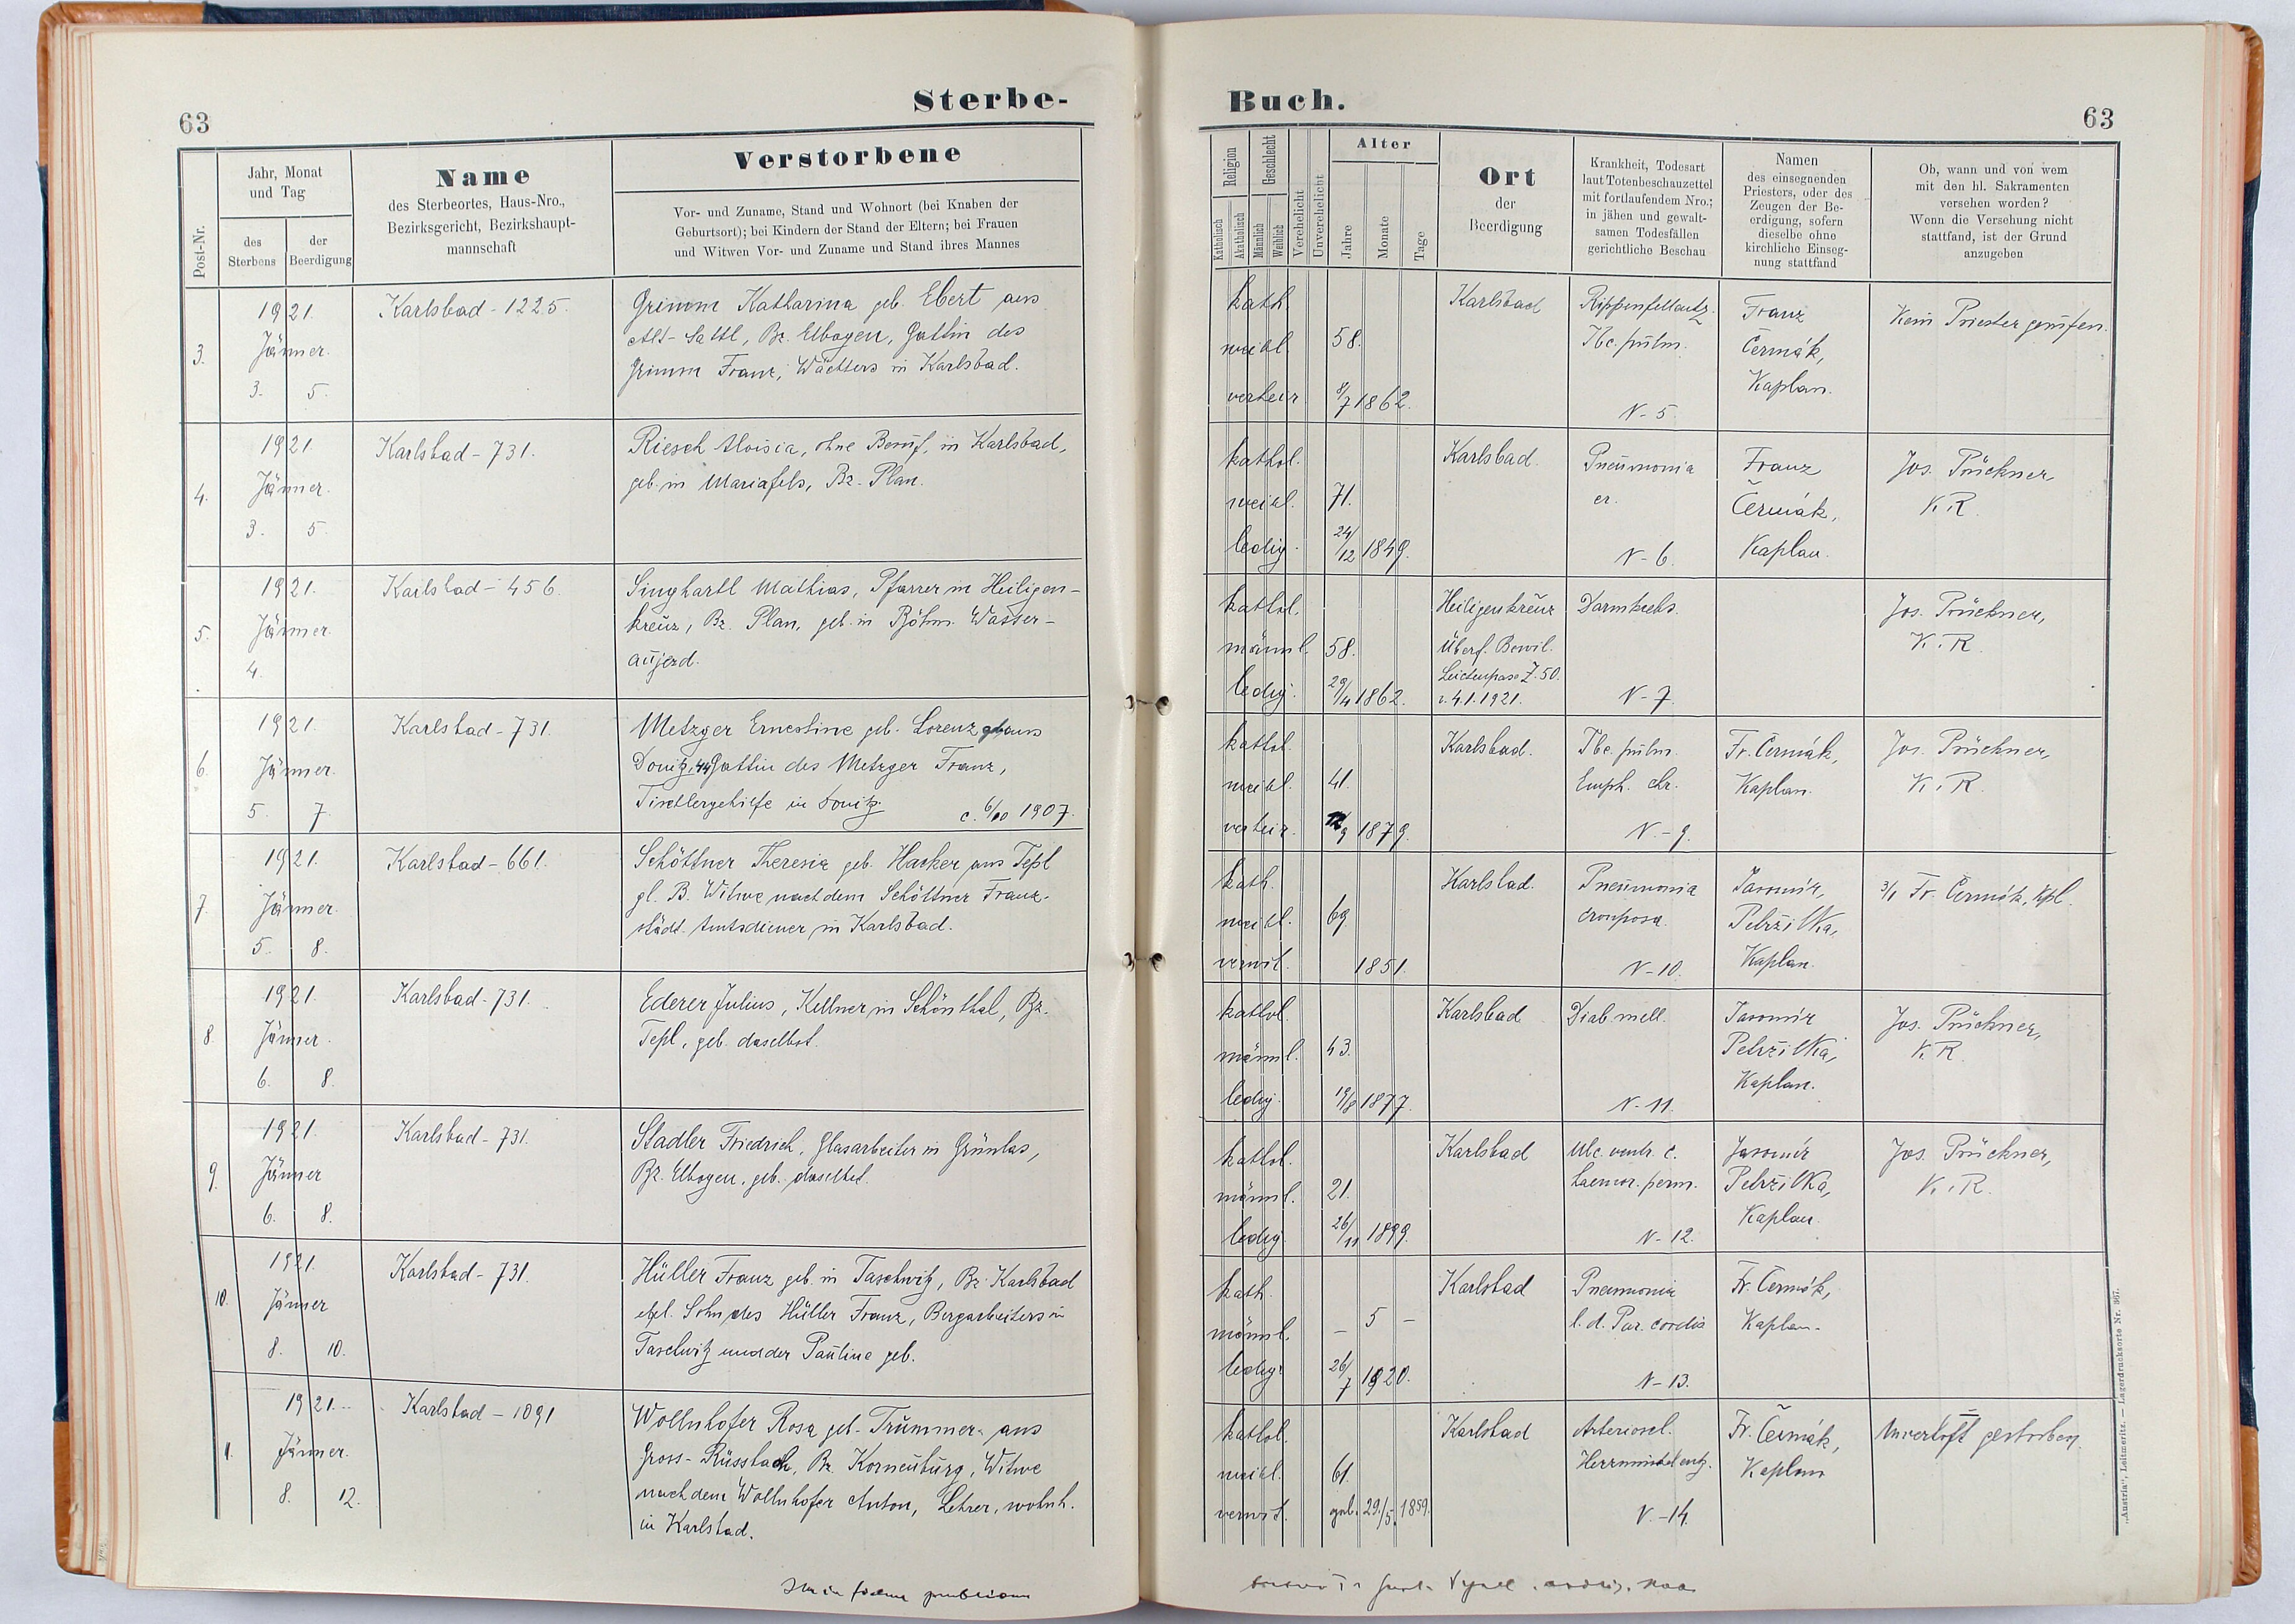 63
Sterbe-
Post-Nr.
Jahr, Monat
und Tag
des
Sterbens
der
Beerdigung
Name
des Sterbeortes, Haus-Nro.,
Bezirksgericht, Bezirkshaupt-
mannschaft
Verstorbene
Vor- und Zuname, Stand und Wohnort (bei Knaben der
Geburtsort); bei Kindern der Stand der Eltern; bei Frauen
und Witwen Vor- und Zuname und Stand ihres Mannes
3.
1921.
Jänner.
3. 5.
Karlsbad - 1225.
Grimm Katharina geb. Ebert aus
Alt-Sattl, Bz. Elbogen, Gattin des
Grimm Franz, Wächters in Karlsbad.
4.
1921.
Jänner.
3. 5.
Karlsbad - 731.
Riesch Aloisia, ohne Beruf, in Karlsbad,
geb. in Mariafels, Bz. Plan.
5.
1921.
Jänner.
4.
Karlsbad - 456.
Singhartl Mathias, Pfarrer in Heiligen-
kreuz, Bz. Plan, geb. in Böhm. Wasser-
aujezd.
6.
1921.
Jänner.
5. 7.
Karlsbad - 731.
Metzger Ernestine geb. Lorenz aus
Donitz, 44 Gattin des Metzger Franz,
Tischlergehilfe in Donitz. c. 6/10 1907.
7.
1921.
Jänner.
5. 8.
Karlsbad - 661.
Schöttner Theresia geb. Hacker aus Tepl
gl. B. Witwe nach dem Schöttner Franz.
städt. Amtsdiener in Karlsbad.
8.
1921.
Jänner.
6. 8.
Karlsbad - 731.
Ederer Julius, Kellner in Schönthal, Bz.
Tepl, geb. daselbst.
9.
1921.
Jänner
6. 8.
Karlsbad - 731.
Stadler Friedrich, Glasarbeiter in Grünlas,
Bz. Elbogen, geb. daselbst.
10.
1921.
Jänner
8. 10.
Karlsbad - 731.
Hüller Franz geb. in Taschwitz, Bz. Karlsbad
ehel. Sohn des Hüller Franz, Bergarbeiters in
Taschwitz und der Paulina geb.
1.
1921.
Jänner.
8. 12.
Karlsbad - 1091
Wollnhofer Rosa geb. Trümmer aus
Gross-Rüssbach, Bz. Korneuburg, Witwe
nach dem Wollnhofer Anton, Lehrer, wohnh.
in Karlsbad.
in forma
Buch.
63
Religion
Katholisch
Akatholisch
Geschlecht
Männlich
Weiblich
Verehelicht
Unverehelicht
Alter
Jahre
Monate
Tage
Ort
der
Beerdigung
Krankheit, Todesart
laut Totenbeschauzettel
mit fortlaufendem Nro.;
in jähen und gewalt-
samen Todesfällen
gerichtliche Beschau
Namen
des einsegnenden
Priesters, oder des
Zeugen der Be-
erdigung, sofern
dieselbe ohne
kirchliche Einseg-
nung stattfand
Ob, wann und von wem
mit den hl. Sakramenten
versehen worden?
Wenn die Versehung nicht
stattfand, ist der Grund
anzugeben
kath.
weibl.
verheir.
58.
8/7 1862.
Karlsbad
Rippenfellentz.
Tbc. pulm.
N - 5.
Franz
Čermák,
Kaplan.
Kein Priester gerufen.
kathol.
weibl.
ledig.
71.
24/12 1849.
Karlsbad.
Pneumonia
cr.
N - 6.
Franz
Čermák,
Kaplan.
Jos. Prückner,
K. R.
kathol.
männl.
ledig.
58.
29/4 1862.
Heiligenkreuz
Überf. Bewil.
Leichenpass Z. 50.
v. 4.1.1921.
Darmkrebs.
N - 7.
Jos. Prückner,
K. R.
kathol.
weibl.
verheir.
41.
9 1879.
Karlsbad.
Tbc. pulm.
Emph. chr.
N - 9.
Fr. Čermák,
Kaplan.
Jos. Prückner,
K. R.
kath.
weibl.
verwit.
69.
1851.
Karlsbad.
Pneumonia
crouposa.
N - 10.
Jaromír
Petržilka,
Kaplan.
3/1 Fr. Čermák, Kpl.
kathol.
männl.
ledig.
43.
19/8 1877.
Karlsbad
Diab. mell.
N - 11.
Jaromír
Petržilka,
Kaplan.
Jos. Prückner,
K. R.
kathol.
männl.
ledig.
21.
26/11 1899.
Karlsbad
Ulc. ventr. c.
N - 12.
Jaromír
Petržilka,
Kaplan.
Jos. Prückner,
K. R.
kath.
männl.
ledig.
- 5 -
26/7 1920.
Karlsbad
Pneumonia
l. d. Par. cordis
N - 13.
Fr. Čermák,
Kaplan.
kathol.
weibl.
verwit.
61.
geb. 29./5. 1859.
Karlsbad
Arterioscl.
N - 14.
Fr. Čermák,
Kaplan
Unverhofft gestorben.
"Austria", Leitmeritz. — Lagerdrucksorte Nr. 367.